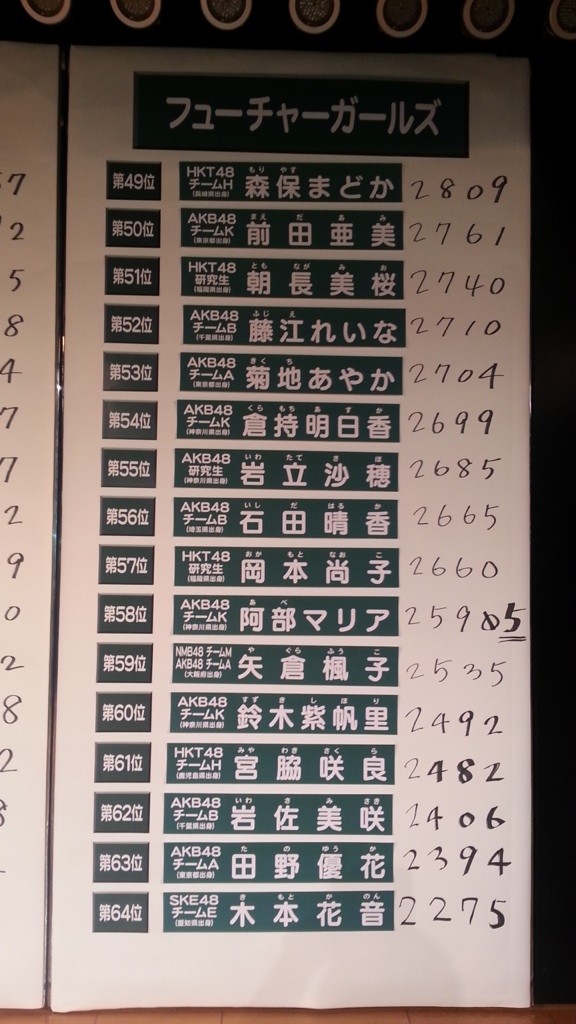 フューチャーガールズ
第49位 HKT48 チームH (長崎県出身) 森保まどか 2809
第50位 AKB48 チームK (東京都出身) 前田亜美 2761
第51位 HKT48 研究生 (福岡県出身) 朝長美桜 2740
第52位 AKB48 チームB (千葉県出身) 藤江れいな 2710
第53位 AKB48 チームA (東京都出身) 菊地あやか 2704
第54位 AKB48 チームK (神奈川県出身) 倉持明日香 2699
第55位 AKB48 研究生 (神奈川県出身) 岩立沙穂 2685
第56位 AKB48 チームB (埼玉県出身) 石田晴香 2665
第57位 HKT48 研究生 (福岡県出身) 岡本尚子 2660
第58位 AKB48 チームK (神奈川県出身) 阿部マリア 2595
第59位 NMB48 チームM AKB48 チームA (大阪府出身) 矢倉楓子 2535
第60位 AKB48 チームK (神奈川県出身) 鈴木紫帆里 2492
第61位 HKT48 チームH (鹿児島県出身) 宮脇咲良 2482
第62位 AKB48 チームB (千葉県出身) 岩佐美咲 2406
第63位 AKB48 チームA (東京都出身) 田野優花 2394
第64位 SKE48 チームE (愛知県出身) 木本花音 2275